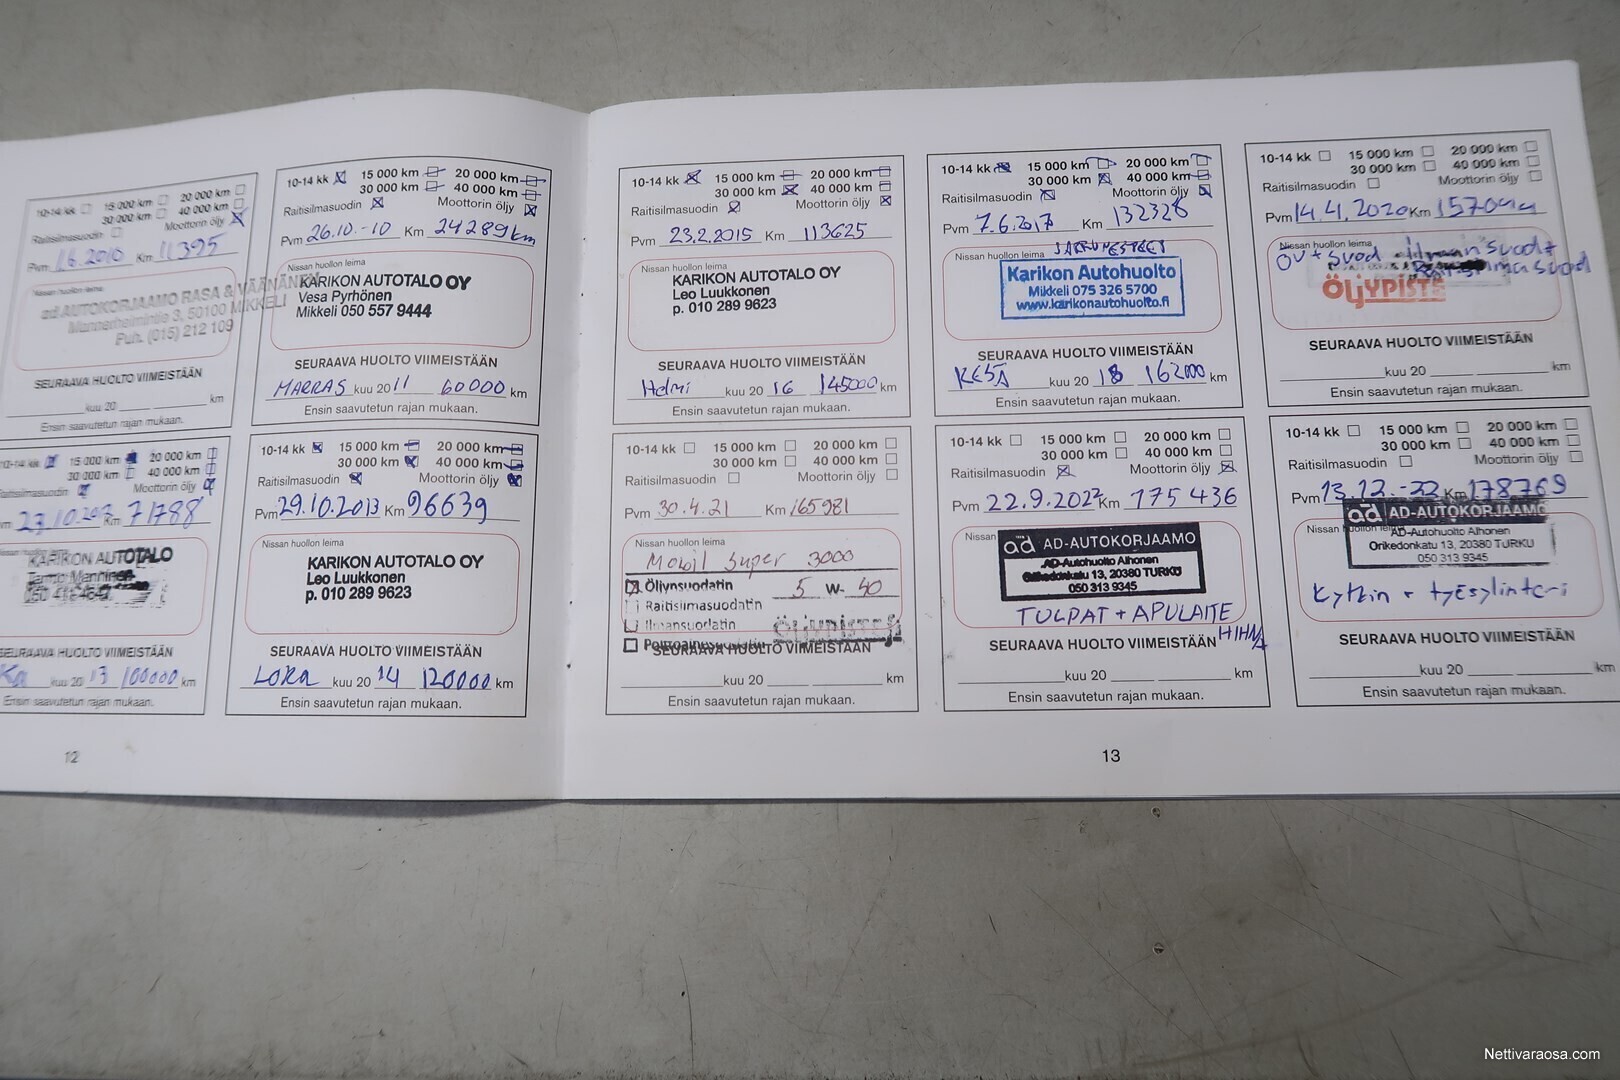 10-14 kk 15 000 km 20 000 km
30 000 km 40 000 km
Raitisilmasuodin Moottorin öljy
Pvm 1.6.2010 Km 11395
Nissan huollon leima
ad AUTOKORJAAMO RASA & VÄÄNÄNEN
Mannerheimintie 3, 50100 MIKKELI
Puh. (015) 212 109
SEURAAVA HUOLTO VIIMEISTÄÄN
kuu 20 km
Ensin saavutetun rajan mukaan.
10-14 kk 15 000 km 20 000 km
30 000 km 40 000 km
Raitisilmasuodin Moottorin öljy
Pvm 26.10.-10 Km 24289km
Nissan huollon leima
KARIKON AUTOTALO OY
Vesa Pyrhönen
Mikkeli 050 557 9444
SEURAAVA HUOLTO VIIMEISTÄÄN
MARRAS kuu 20 11 60000 km
Ensin saavutetun rajan mukaan.
10-14 kk 15 000 km 20 000 km
30 000 km 40 000 km
Raitisilmasuodin Moottorin öljy
Pvm 23.2.2015 Km 113625
Nissan huollon leima
KARIKON AUTOTALO OY
Leo Luukkonen
p. 010 289 9623
SEURAAVA HUOLTO VIIMEISTÄÄN
Helmi kuu 20 16 145000 km
Ensin saavutetun rajan mukaan.
10-14 kk 15 000 km 20 000 km
30 000 km 40 000 km
Raitisilmasuodin Moottorin öljy
Pvm 7.6.2017 Km 132328
Nissan huollon leima JARRUNESTEET
Karikon Autohuolto
Mikkeli 075 326 5700
www.karikonautohuolto.fi
SEURAAVA HUOLTO VIIMEISTÄÄN
KESÄ kuu 20 18 162000 km
Ensin saavutetun rajan mukaan.
10-14 kk 15 000 km 20 000 km
30 000 km 40 000 km
Raitisilmasuodin Moottorin öljy
Pvm 14.4.2020 Km
Nissan huollon leima
öv + suod
ÖLJYPISTE
SEURAAVA HUOLTO VIIMEISTÄÄN
kuu 20 km
Ensin saavutetun rajan mukaan.
10-14 kk 15 000 km 20 000 km
30 000 km 40 000 km
Raitisilmasuodin Moottorin öljy
Km 71788
Nissan huollon leima
KARIKON AUTOTALO
Manninen
SEURAAVA HUOLTO VIIMEISTÄÄN
kuu 20 13 100000 km
Ensin saavutetun rajan mukaan.
10-14 kk 15 000 km 20 000 km
30 000 km 40 000 km
Raitisilmasuodin Moottorin öljy
Pvm 29.10.2013 Km 96639
Nissan huollon leima
KARIKON AUTOTALO OY
Leo Luukkonen
p. 010 289 9623
SEURAAVA HUOLTO VIIMEISTÄÄN
LOKA kuu 20 14 120000 km
Ensin saavutetun rajan mukaan.
10-14 kk 15 000 km 20 000 km
30 000 km 40 000 km
Raitisilmasuodin Moottorin öljy
Pvm 30.4.21 Km 165981
Nissan huollon leima
Mobil Super 3000
Öljynsuodatin 5 W- 40
Raitisilmasuodatin
Ilmansuodatin ÖLJYPISTE
Polttoainesuodatin
SEURAAVA HUOLTO VIIMEISTÄÄN
kuu 20 km
Ensin saavutetun rajan mukaan.
10-14 kk 15 000 km 20 000 km
30 000 km 40 000 km
Raitisilmasuodin Moottorin öljy
Pvm 22.9.2022 Km 175436
Nissan
ad AD-AUTOKORJAAMO
AD-Autohuolto Alhonen
Orikedonkatu 13, 20380 TURKU
050 313 9345
TULPAT + APULAITE
HIHNA
SEURAAVA HUOLTO VIIMEISTÄÄN
kuu 20 km
Ensin saavutetun rajan mukaan.
10-14 kk 15 000 km 20 000 km
30 000 km 40 000 km
Raitisilmasuodin Moottorin öljy
Pvm 13.12.-22 Km 178769
Nissan huollon leima
ad AD-AUTOKORJAAMO
AD-Autohuolto Alhonen
Orikedonkatu 13, 20380 TURKU
050 313 9345
Kytkin + työsylinteri
SEURAAVA HUOLTO VIIMEISTÄÄN
kuu 20 km
Ensin saavutetun rajan mukaan.
12
13
Nettivaraosa.com